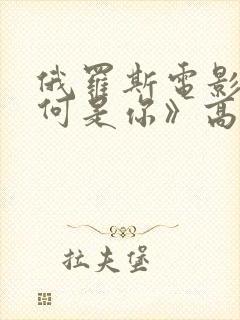 俄羅斯電影
何是你》高
拉夫堡